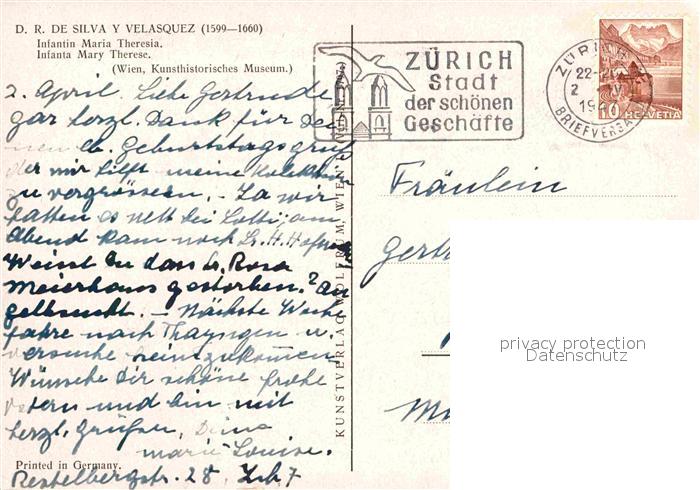 D. R. DE SILVA Y VELASQUEZ (1599—1660)
Infantin Maria Theresia.
Infanta Mary Therese.
(Wien, Kunsthistorisches Museum.)
2. April. Liebe Gertrude
gar herzl. Dank für Dei-
nen lb. Geburtstagsgruss
der mir hilft meine Kollektion
zu vergrössern. – Ja wir
hatten es nett bei Lotti, am
Abend kam noch
Weisst Du dass Rosa
Meierhans gestorben? An
Gelbsucht. – Nächste Woche
fahre nach Thayngen u.
versuche heimzukommen
Wünsche Dir schöne frohe
Ostern und bin mit
herzl. Grüssen, Deine
Marie Louise.
Printed in Germany.
Restelbergstr. 28 Zch. 7
KUNSTVERLAG WOLFRUM, WIEN
ZÜRICH
Stadt
der schönen
Geschäfte
ZÜRICH
22-
2
BRIEFVERSAND
10 HELVETIA
Fräulein
privacy protection
Datenschutz